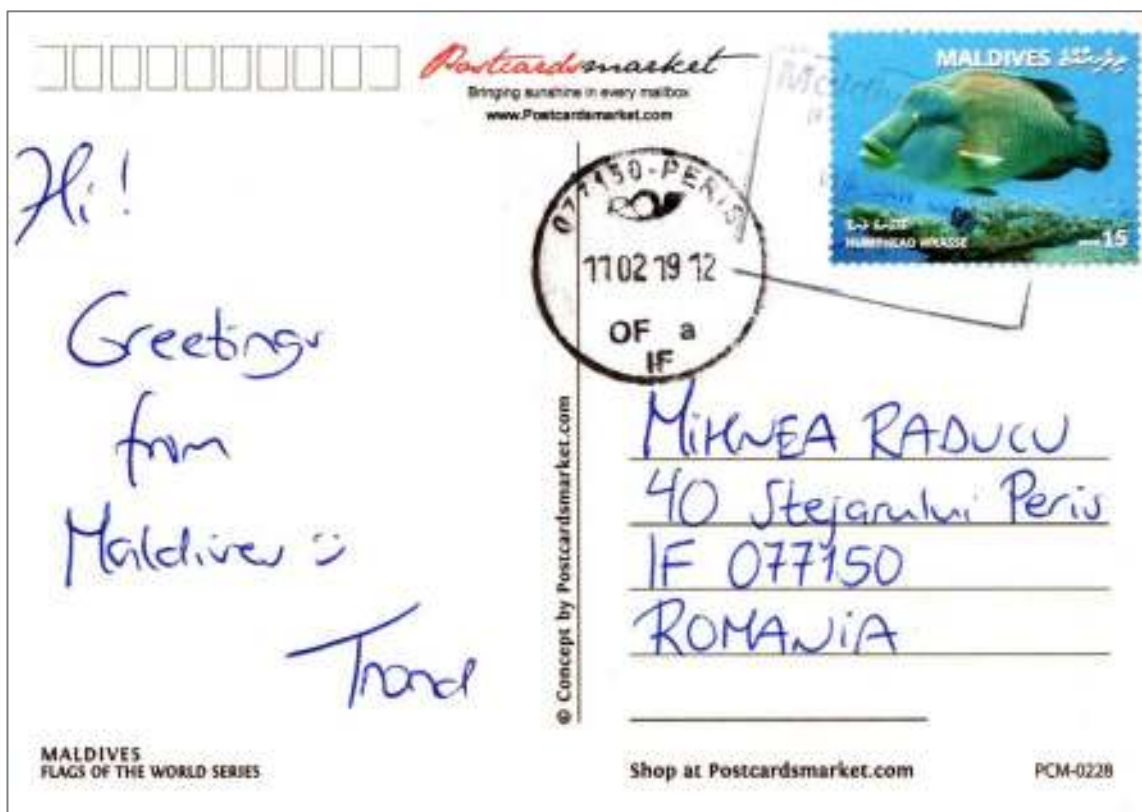 Postcardsmarket
Bringing sunshine in every mailbox
www.Postcardsmarket.com
MALDIVES
HUMPHEAD WRASSE
15
077150-PERIS
11 02 19 12
OF a
IF
Hi!
Greetings
from
Maldives :)
Trond
© Concept by Postcardsmarket.com
MiHNEA RADUCU
40 Stejarului Peris
IF 077150
ROMANiA
MALDIVES
FLAGS OF THE WORLD SERIES
Shop at Postcardsmarket.com
PCM-0228